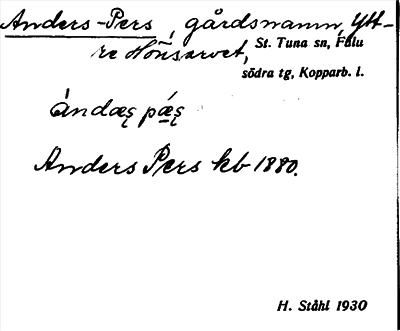 Anders-Pers, gårdsnamn, Ytt-
re Hönsarvet, St. Tuna sn, Falu
södra tg, Kopparb. l.
ándæʂ pæ̀ʂ
Anders Pers kb 1880.
H. Ståhl 1930